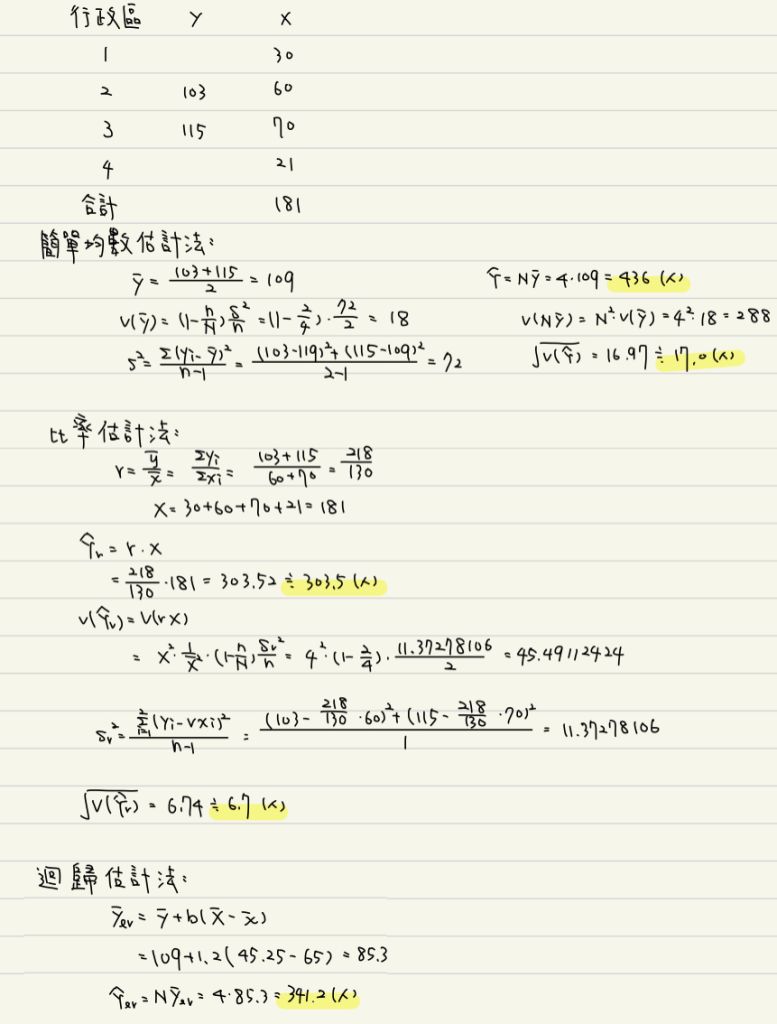 行政區 Y X
1 30
2 103 60
3 115 70
4 21
合計 181
簡單均數估計法:
ȳ = (103+115)/2 = 109 Ŷ = Nȳ = 4·109 = 436 (人)
v(ȳ) = (1-n/N) s²/n = (1-2/4)·72/2 = 18 v(Nȳ) = N²·v(ȳ) = 4²·18 = 288
s² = Σ(yi-ȳ)²/(n-1) = ((103-119)²+(115-109)²)/(2-1) = 72 √v(Ŷ) = 16.97 ≒ 17.0 (人)
比率估計法:
r = ȳ/x̄ = Σyi/Σxi = (103+115)/(60+70) = 218/130
X = 30+60+70+21 = 181
Ŷr = r·X
= 218/130·181 = 303.52 ≒ 303.5 (人)
v(Ŷr) = V(rX)
= X²·1/X̄²·(1-n/N) sr²/n = 4²·(1-2/4)·11.37278106/2 = 45.49112424
sr² = Σ(i=1→2)(Yi-rxi)²/(n-1) = ((103-218/130·60)²+(115-218/130·70)²)/1 = 11.37278106
√V(Ŷr) = 6.74 ≒ 6.7 (人)
迴歸估計法:
ȳlr = ȳ+b(X̄-x̄)
= 109+1.2(45.25-65) = 85.3
Ŷlr = Nȳlr = 4·85.3 = 341.2 (人)